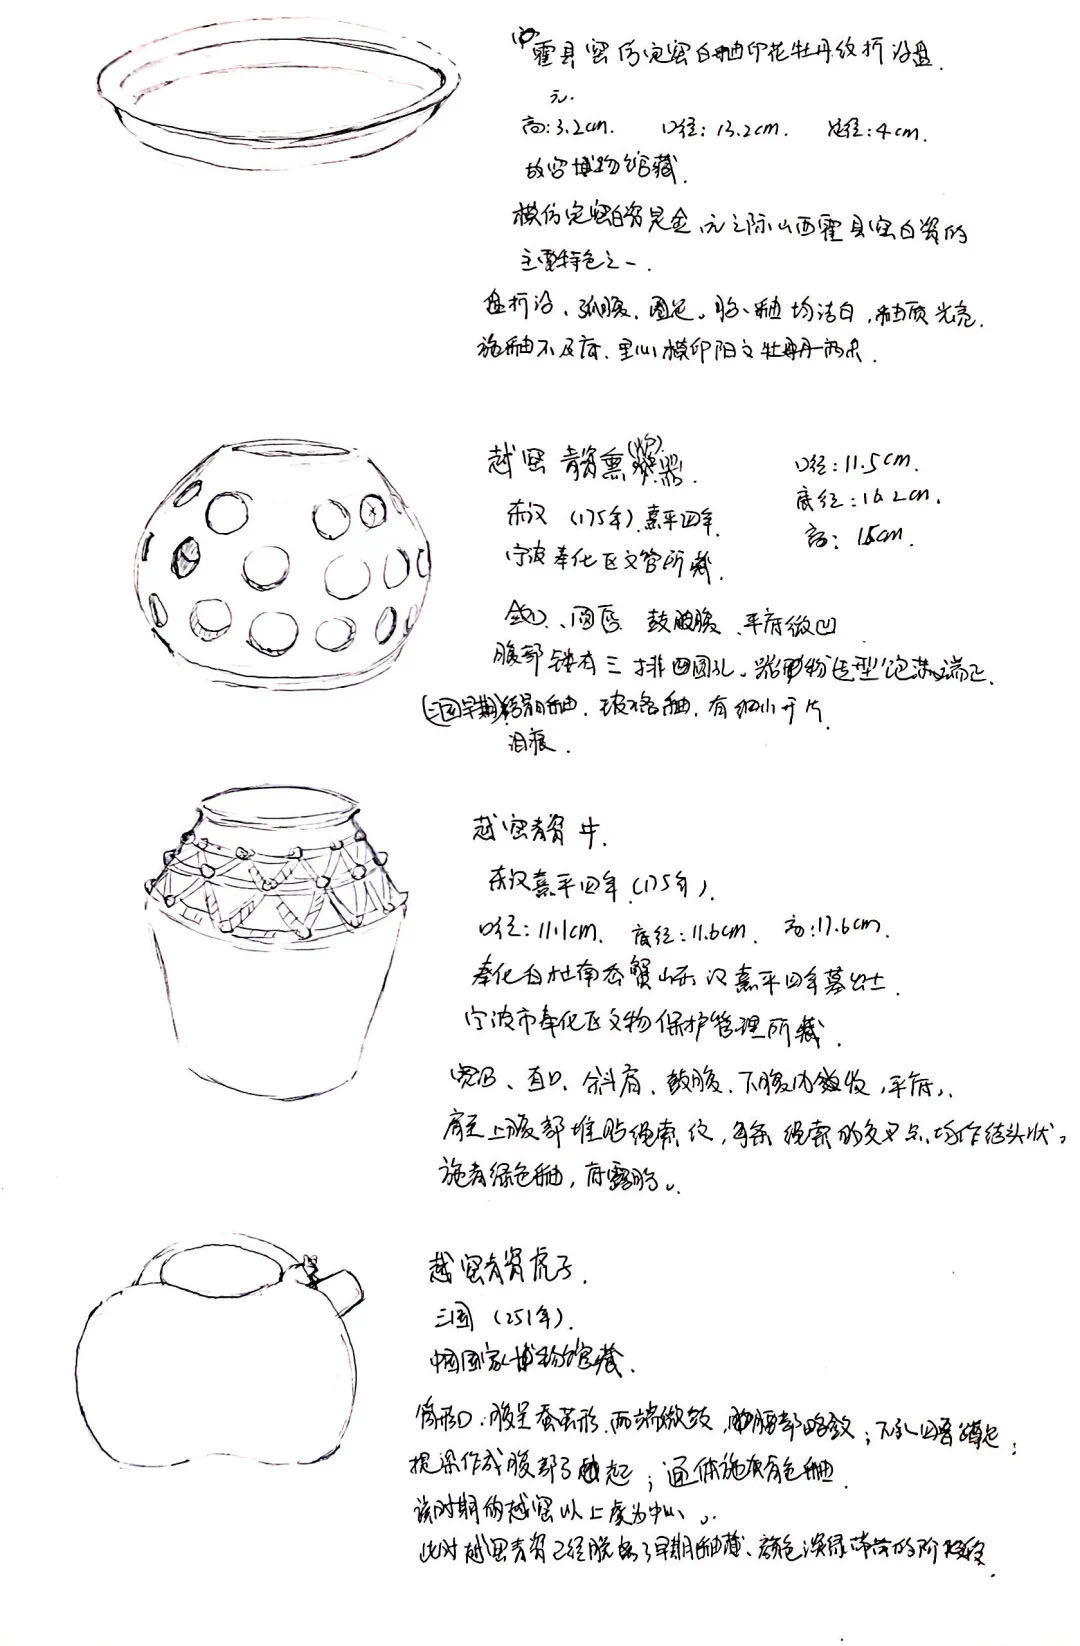 霍县窑仿定窑白釉印花牡丹纹折沿盘.
元.
高:3.2cm. 口径:13.2cm. 足径:4cm.
故宫博物馆藏.
模仿定窑白瓷是金、元之际山西霍县窑白瓷的
主要特色之一.
盘折沿、弧腹、圈足。胎、釉均洁白,釉质光亮.
施釉不及底.里心模印阳文牡丹两朵.
越窑青瓷熏(炉)器.
口径:11.5cm.
东汉(175年).熹平四年
底径:16.2cm.
宁波奉化区文管所藏.
高: 15cm.
敛口、圆唇 鼓腹、平底微凹
腹部镂有三排圆孔。器物造型饱满端正.
(三国早期)釉.玻璃釉.有细小开片.
泪痕.
越窑青瓷 .
东汉熹平四年(175年).
口径:11.1cm. 底径:11.6cm. 高:17.6cm.
奉化白杜南岙蟹山东汉熹平四年墓出土.
宁波市奉化区文物保护管理所藏.
直口、斜肩、鼓腹、下腹内敛收,平底,.
肩至上腹部堆贴绳索纹,每条绳索的交叉点,均作结头状。
施青绿色釉,底露胎。
越窑青瓷虎子.
三国(251年).
中国国家博物馆藏.
筒形口.腹呈蚕茧形.两端微鼓,腰部略敛;下 四 蹲足;
提梁作成 ;通体施灰青色釉.
该时期的越窑以上虞为中心。
此时越窑青瓷已经脱离了早期釉薄、颜色深绿带 的阶段.